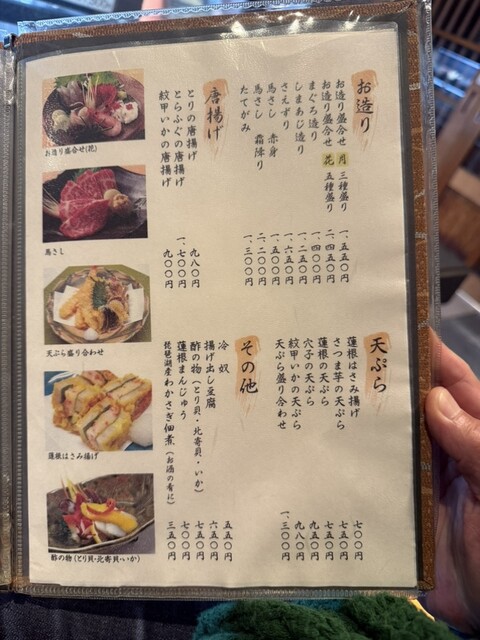 お造り
お造り盛合せ 月 三種盛り 一、五五〇円
お造り盛合せ 花 五種盛り 二、四五〇円
まぐろ造り 一、四〇〇円
しまあじ造り 一、二五〇円
さえずり 一、六五〇円
馬さし 赤身 一、五〇〇円
馬さし 霜降り 二、二〇〇円
たてがみ 一、三〇〇円
唐揚げ
とりの唐揚げ 九八〇円
とらふぐの唐揚げ 一、七〇〇円
紋甲いかの唐揚げ 九〇〇円
天ぷら
蓮根はさみ揚げ 七〇〇円
さつま芋の天ぷら 七五〇円
蓮根の天ぷら 七五〇円
穴子の天ぷら 九五〇円
紋甲いかの天ぷら 九八〇円
天ぷら盛り合わせ 一、三〇〇円
その他
冷奴 五五〇円
揚げ出し豆腐 六五〇円
酢の物（とり貝・北寄貝・いか） 七五〇円
蓮根まんじゅう 七〇〇円
琵琶湖産わかさぎ佃煮（お酒の肴に） 三五〇円
お造り盛合せ(花)
馬さし
天ぷら盛り合わせ
蓮根はさみ揚げ
酢の物(とり貝・北寄貝・いか)